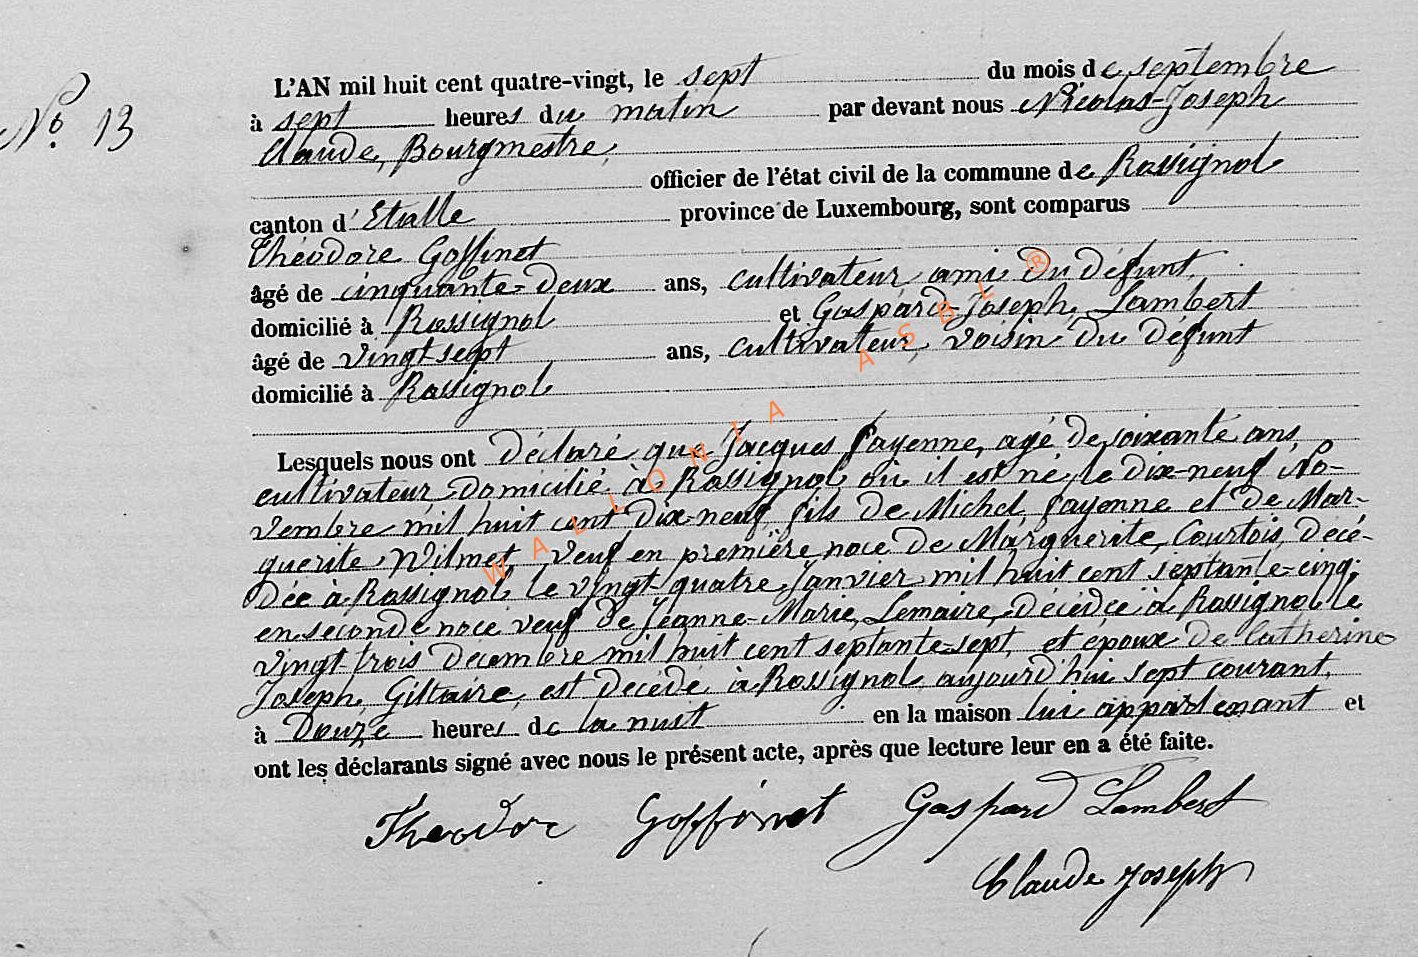 No. 13
L'AN mil huit cent quatre-vingt, le sept du mois de septembre
à sept heures du matin par devant nous Nicolas-Joseph
Claude, Bourgmestre,
officier de l'état civil de la commune de Rossignol
canton d'Etalle province de Luxembourg, sont comparus
Théodore Goffinet
âgé de cinquante-deux ans, cultivateur ami du défunt,
domicilié à Rossignol et Gaspard-Joseph Lambert
âgé de vingt sept ans, cultivateur, voisin du défunt
domicilié à Rossignol
Lesquels nous ont déclaré que Jacques Fayenne, agé de soixante ans,
cultivateur domicilié à Rossignol où il est né le dix-neuf No-
vembre mil huit cent dix-neuf, fils de Michel Fayenne et de Mar-
guerite Wilmet, veuf en première noce de Marguerite Courtois, décé-
dée à Rossignol le vingt quatre Janvier mil huit cent septante-cinq;
en seconde noce veuf de Jeanne-Marie Lemaire, décédée à Rossignol le
vingt-trois décembre mil huit cent septante-sept, et epoux de Catherine
Joseph Giltaire, est décédé à Rossignol aujourd'hui sept courant,
à Douze heures de la nuit en la maison lui appartenant et
ont les déclarants signé avec nous le présent acte, après que lecture leur en a été faite.
Theodore Goffinet Gaspard Lambert
Claude Joseph
WALLONIA ASBL ®